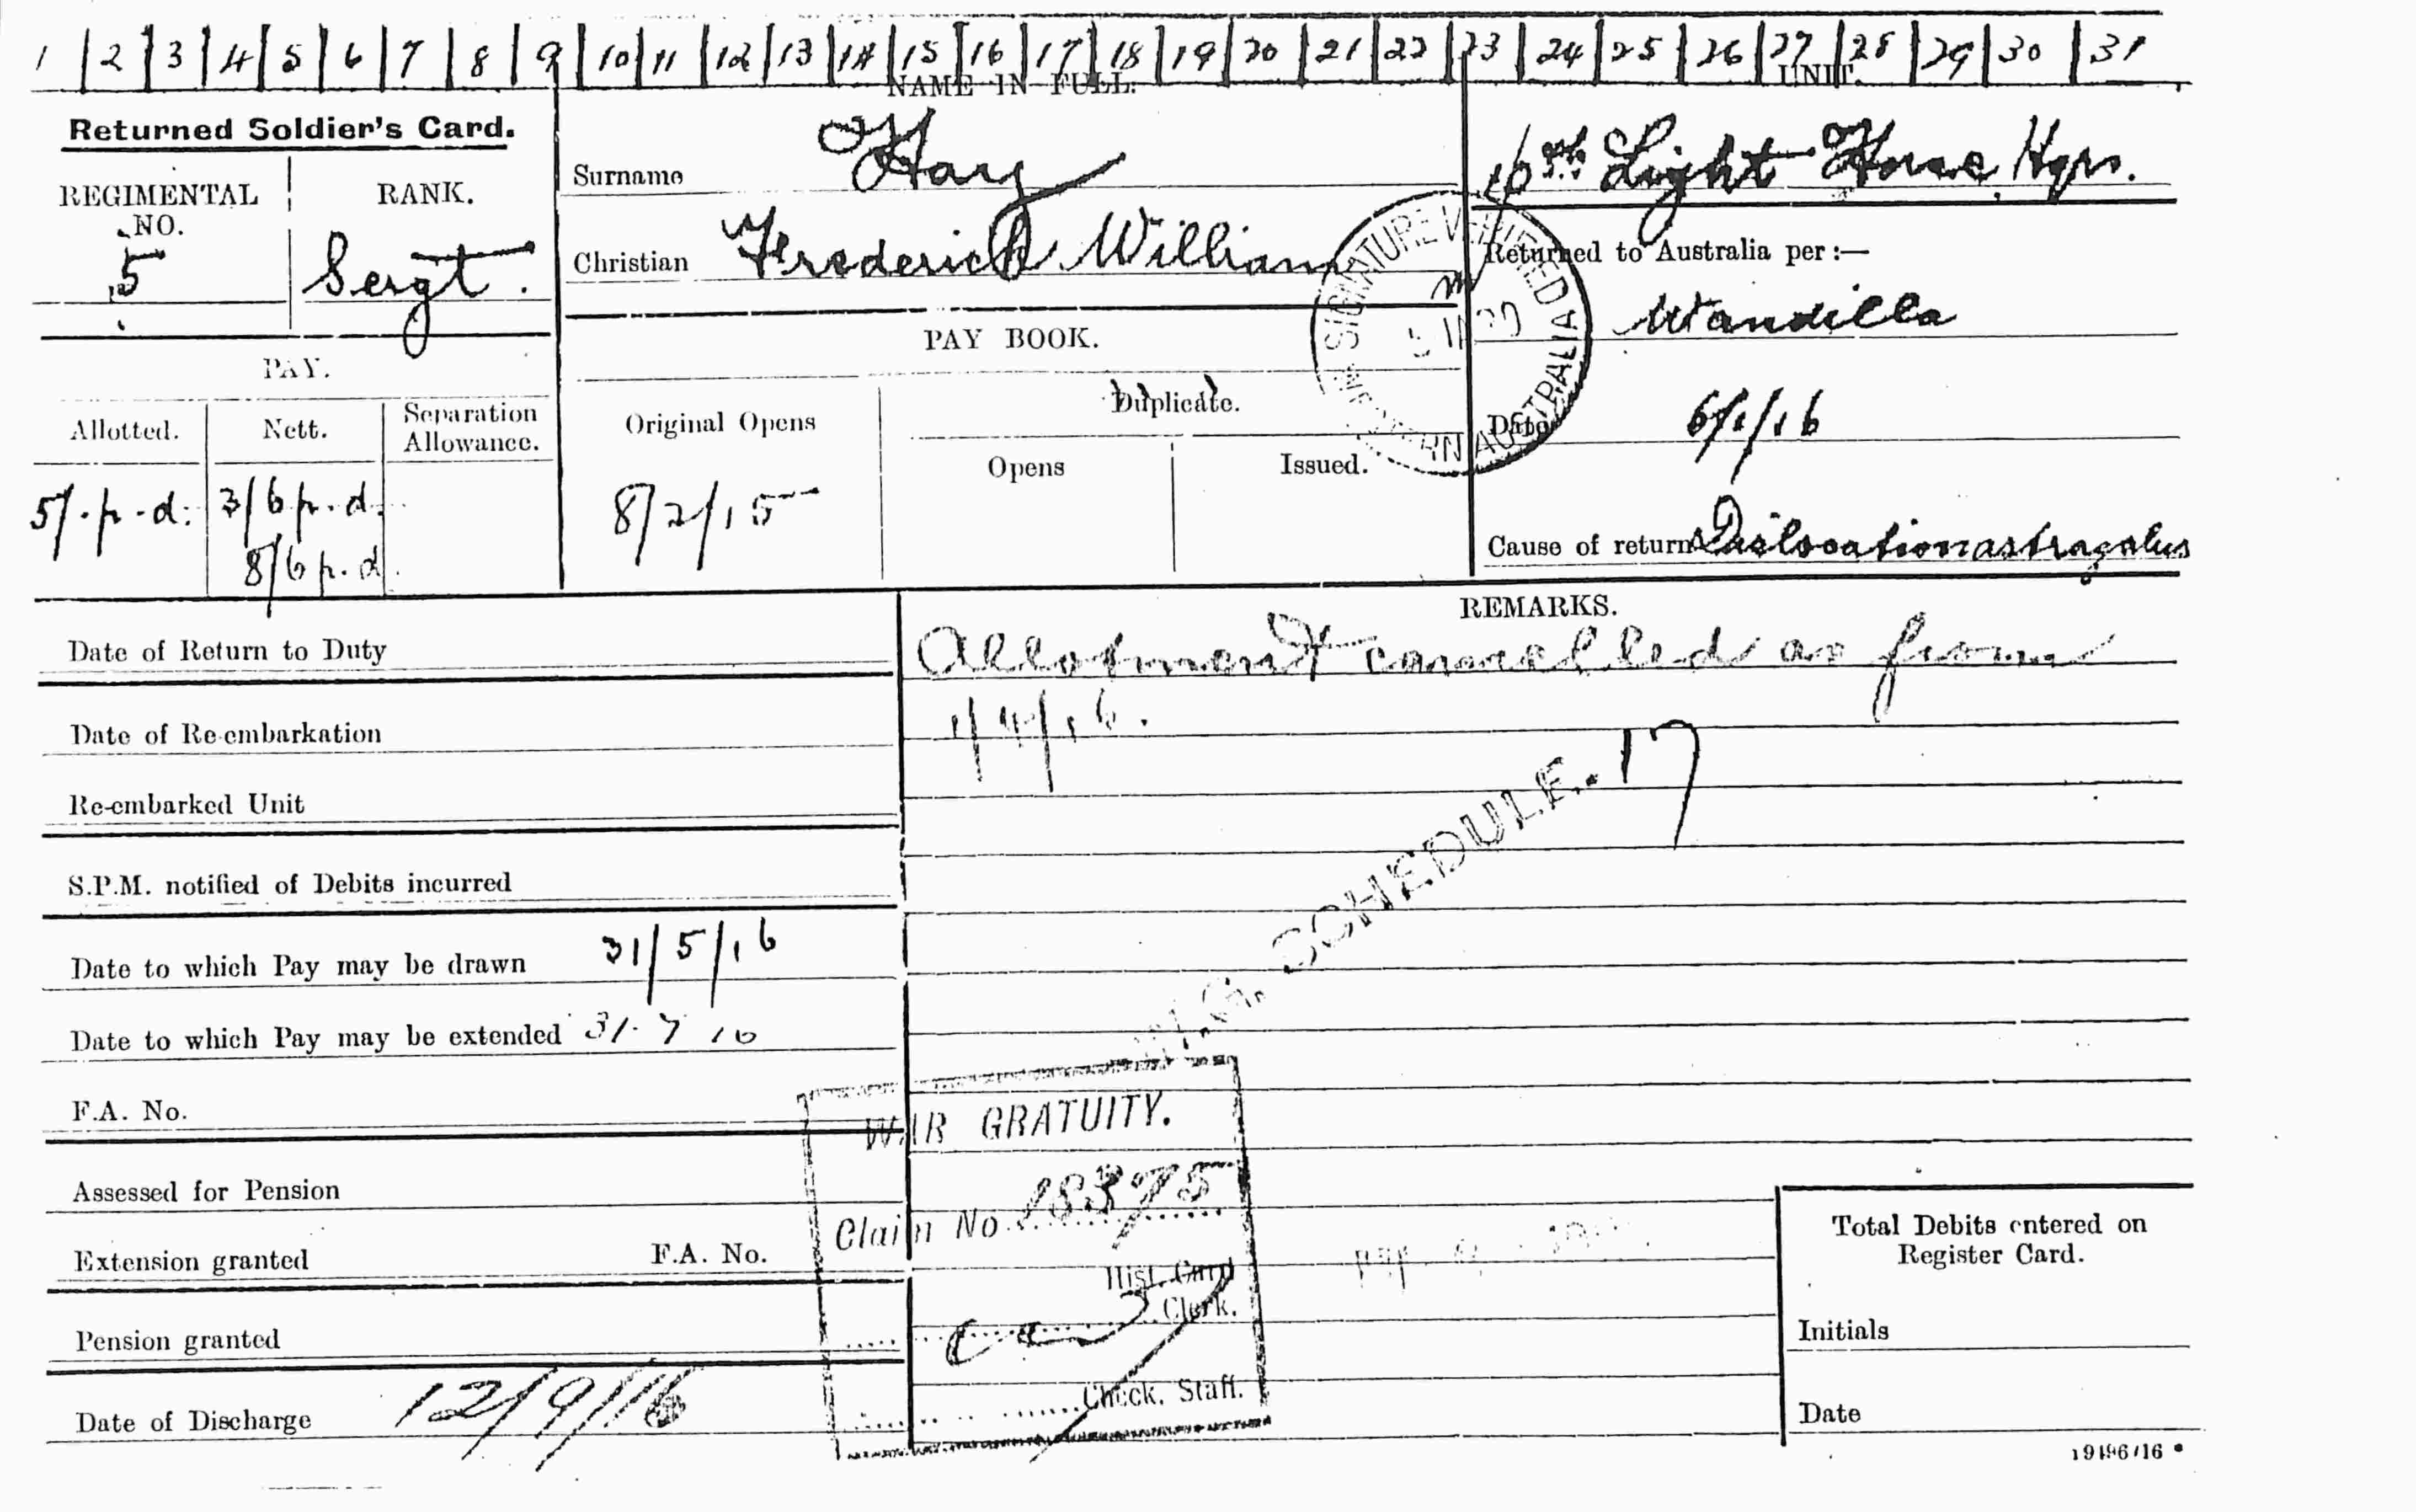 1 2 3 4 5 6 7 8 9 10 11 12 13 14 15 16 17 18 19 20 21 22 23 24 25 26 27 28 29 30 31
Returned Soldier's Card.
NAME IN FULL.
UNIT.
REGIMENTAL NO.
RANK.
5
Sergt.
Surname Hay
Christian Frederick William
10th Light Horse Hqrs.
Returned to Australia per:—
Wandilla
Date 6/1/16
Cause of return Dislocation astragalus
SIGNATURE VERIFIED
AUSTRALIA
PAY.
Allotted.
Nett.
Separation Allowance.
5/-p-d.
3/6 p.d.
8/6 p.d.
PAY BOOK.
Original Opens
Duplicate.
Opens
Issued.
8/2/15
REMARKS.
Allotment cancelled as from
1/4/16.
W.G. SCHEDULE. 17
Date of Return to Duty
Date of Re-embarkation
Re-embarked Unit
S.P.M. notified of Debits incurred
Date to which Pay may be drawn 31/5/16
Date to which Pay may be extended 31.7 16
F.A. No.
Assessed for Pension
Extension granted F.A. No.
Pension granted
Date of Discharge 12/9/16
WAR GRATUITY.
Claim No 18375
Hist. Card
Clerk.
Check. Staff.
Total Debits entered on
Register Card.
Initials
Date